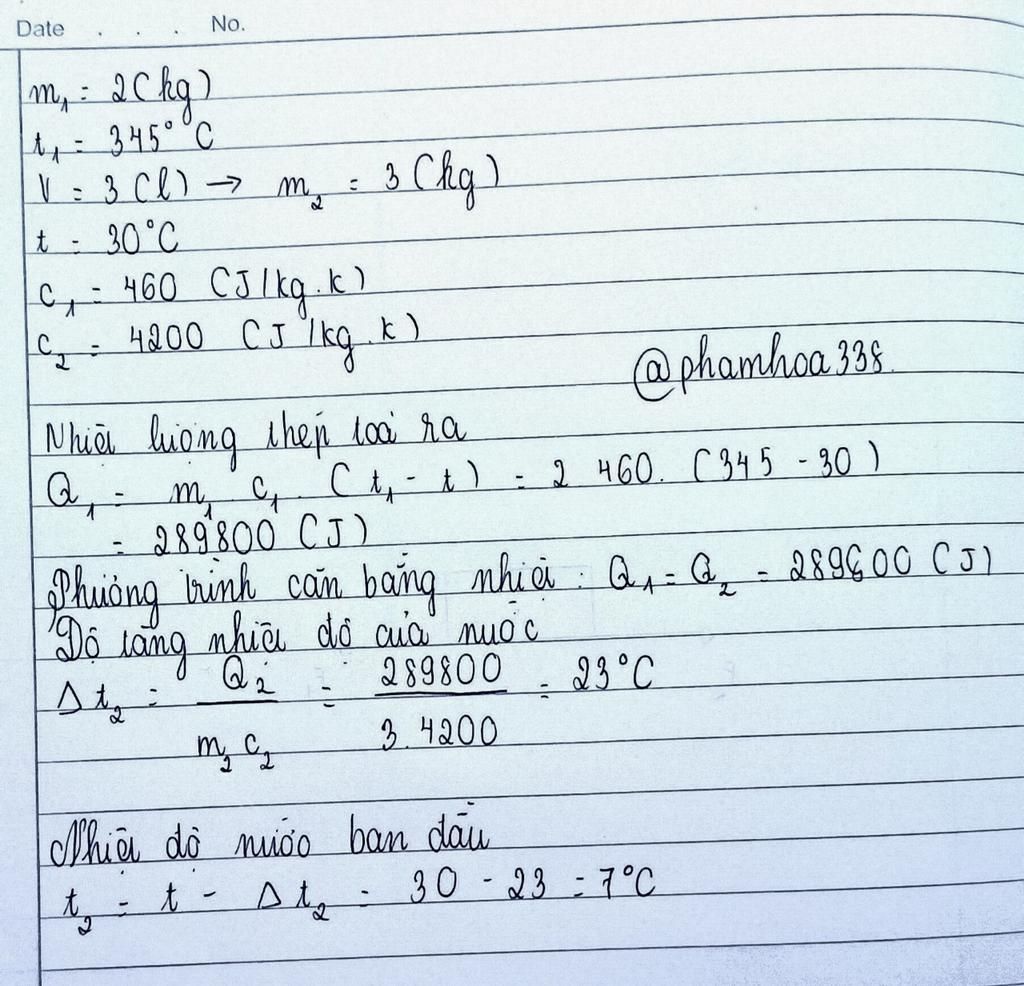 Date . . . No.
m₁ = 2 (kg)
t₁ = 345°C
V = 3 (l) → m₂ = 3 (kg)
t = 30°C
c₁ = 460 (J/kg.k)
c₂ = 4200 (J/kg.k)
@phamhoa338
Nhiệt lượng thép toả ra
Q₁ = m₁ c₁. (t₁ - t) = 2 460. (345 - 30)
= 289800 (J)
Phương trình cân bằng nhiệt : Q₁ = Q₂ = 289800 (J)
Độ tăng nhiệt độ của nước
Δt₂ = Q₂ / m₂ c₂ = 289800 / 3. 4200 = 23°C
Nhiệt độ nước ban đầu
t₂ = t - Δt₂ = 30 - 23 = 7°C